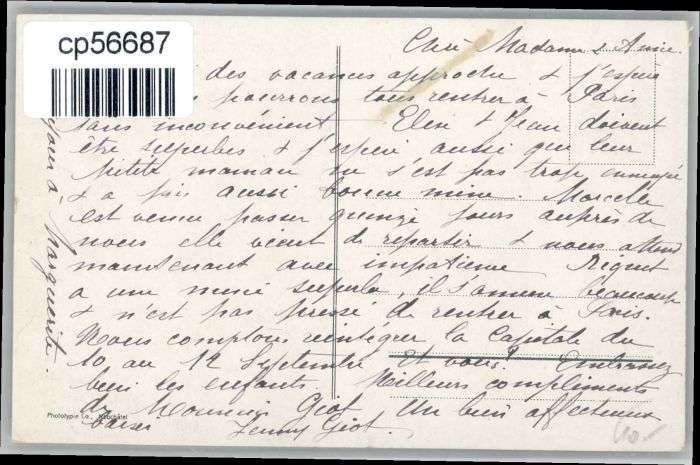 cp56687
Chère Madame & Amie.
des vacances approche & j'espère
pourrons tous rentrer à Paris
sans inconvénient Elen & Jean doivent
être superbes & j'espère aussi que leur
petite maman ne s'est pas trop ennuyée
& a pris aussi bonne mine. Marcelle
est venue passer quinze jours auprès de
nous elle vient de repartir & nous attend
maintenant avec impatience
a une mine superbe, il s'amuse beaucoup
& n'est pas pressé de rentrer à Paris.
Nous comptons réintégrer la Capitale du
10 au 12 Septembre Et vous? Embrassez
bien les enfants. Meilleurs compliments
de Monsieur Giot. Un bien affectueux
baiser Jenny Giot.
à Marguerite.
Phototypie Co., Neuchâtel
10.-